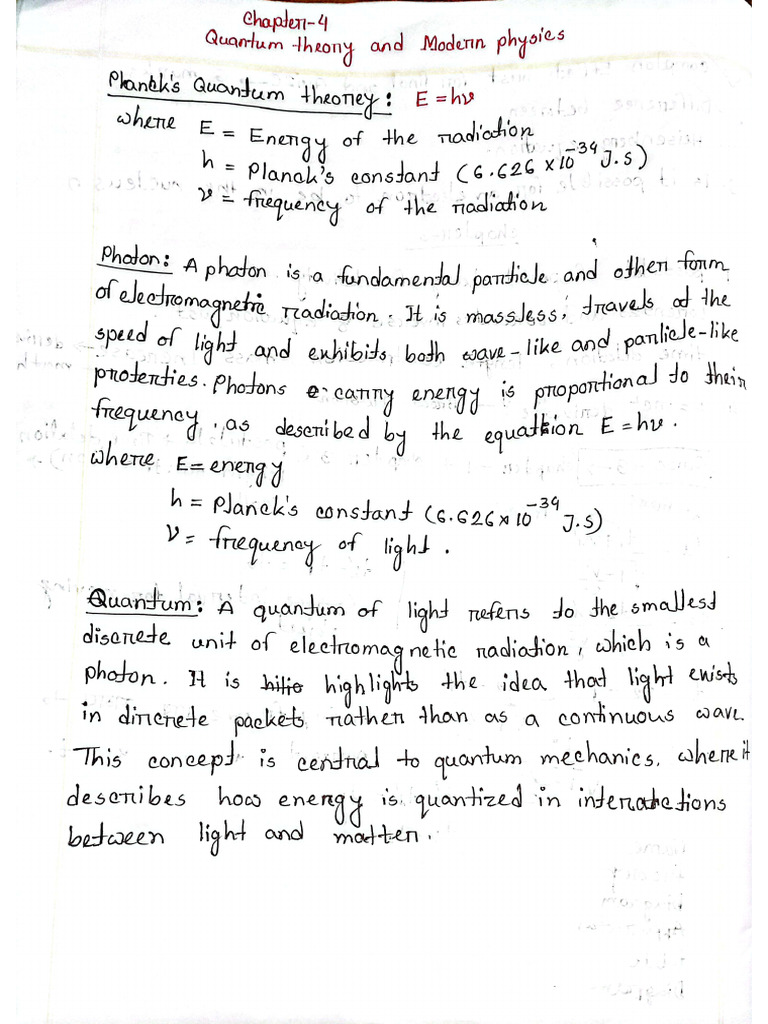 Chapter-4
Quantum theory and Modern physics
Planck's Quantum theorey: E = hν
where E = Energy of the radiation
h = Planck's constant (6.626 × 10⁻³⁴ J.s)
ν = frequency of the radiation
Photon: A photon is a fundamental particle and other form
of electromagnetic radiation. It is massless, travels at the
speed of light and exhibits both wave-like and particle-like
proterties. Photons carry energy is proportional to their
frequency, as described by the equation E = hν.
where E = energy
h = Planck's constant (6.626 × 10⁻³⁴ J.s)
ν = frequency of light.
Quantum: A quantum of light refers to the smallest
discrete unit of electromagnetic radiation, which is a
photon. It is highlights the idea that light exists
in dircrete packets rather than as a continuous wave.
This concept is central to quantum mechanics, where it
describes how energy is quantized in interactions
between light and matter.